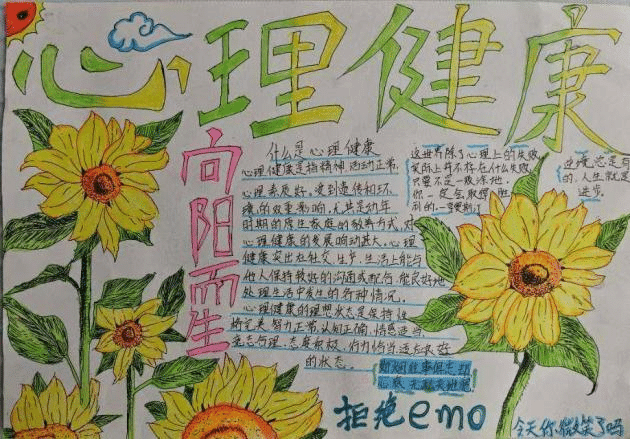 心理健康
向阳而生
什么是心理健康
心理健康是指精神、活动正常、
心理素质好。受到遗传和环
境的双重影响,尤其是幼年
时期的原生家庭的教养方式,对
心理健康的发展响动甚大。心理
健康突出在社交、生产、生活上能与
他人保持较好的沟通或配合,能良好地
处理生活中发生的各种情况。
心理健康的理想状态是保持性
格完美、智力正常、认知正确、情感适当、
意志合理、态度积极、行为恰当、适应良好
的状态。
这世界除了心理上的失败
实际上并不存在什么失败,
只要不是一败涂地,
你一定会取得胜
利的。
逆境总是有
的,人生就是
进步。
拒绝emo
今天你微笑了吗